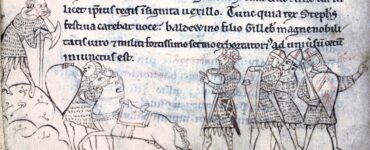 licet ipius regis insignita uexillo. Tunc quia rex Stephs
festiua carebat uoce: baldewino filio Gilleb magne nobili
tatis uiro 7 militi fortissimo sermo exhortatorius ad uniuersū cetū
iniunctus est.